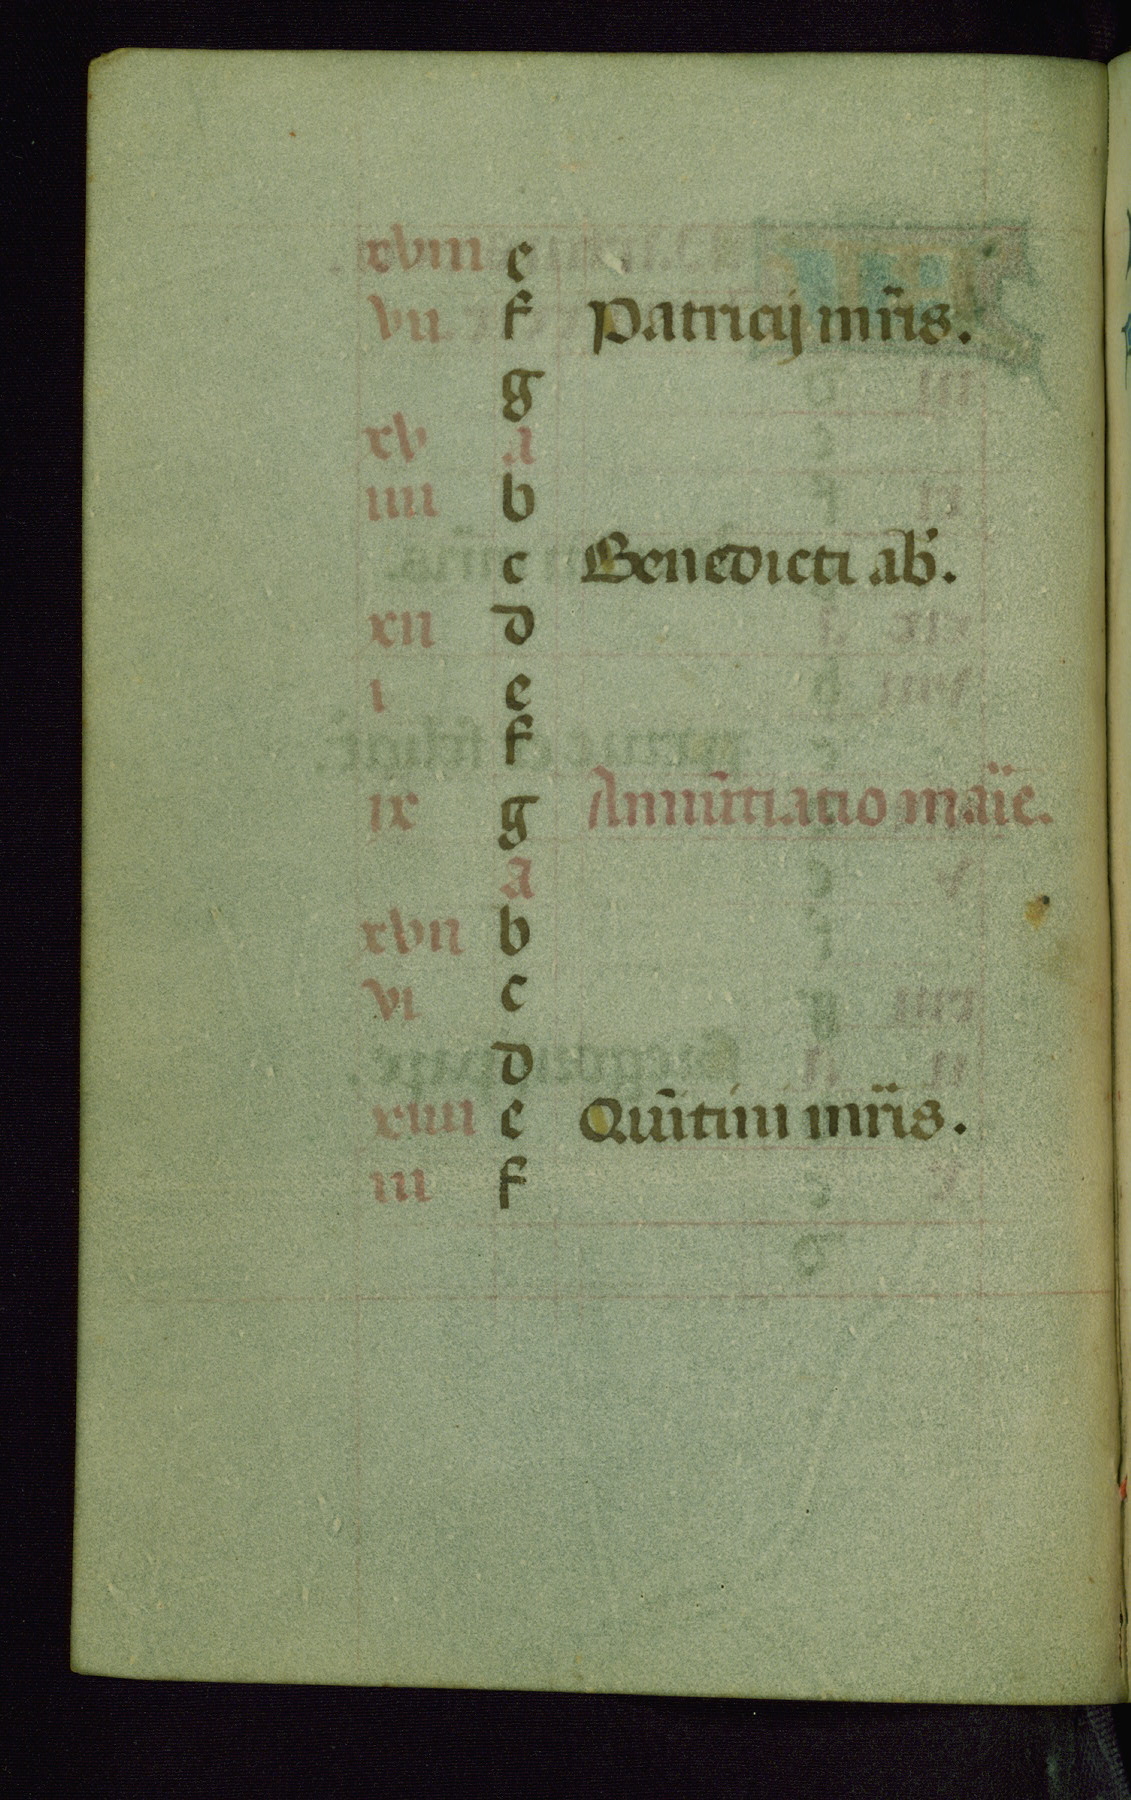 xviii e
vii f Patricij mr̄is.
g
xv a
iiii b
c Benedicti ab'.
xii d
i e
f
ix g Annūtiatio maīe.
a
xvii b
vi c
d
xiiii e Quītini mr̄is.
iii f